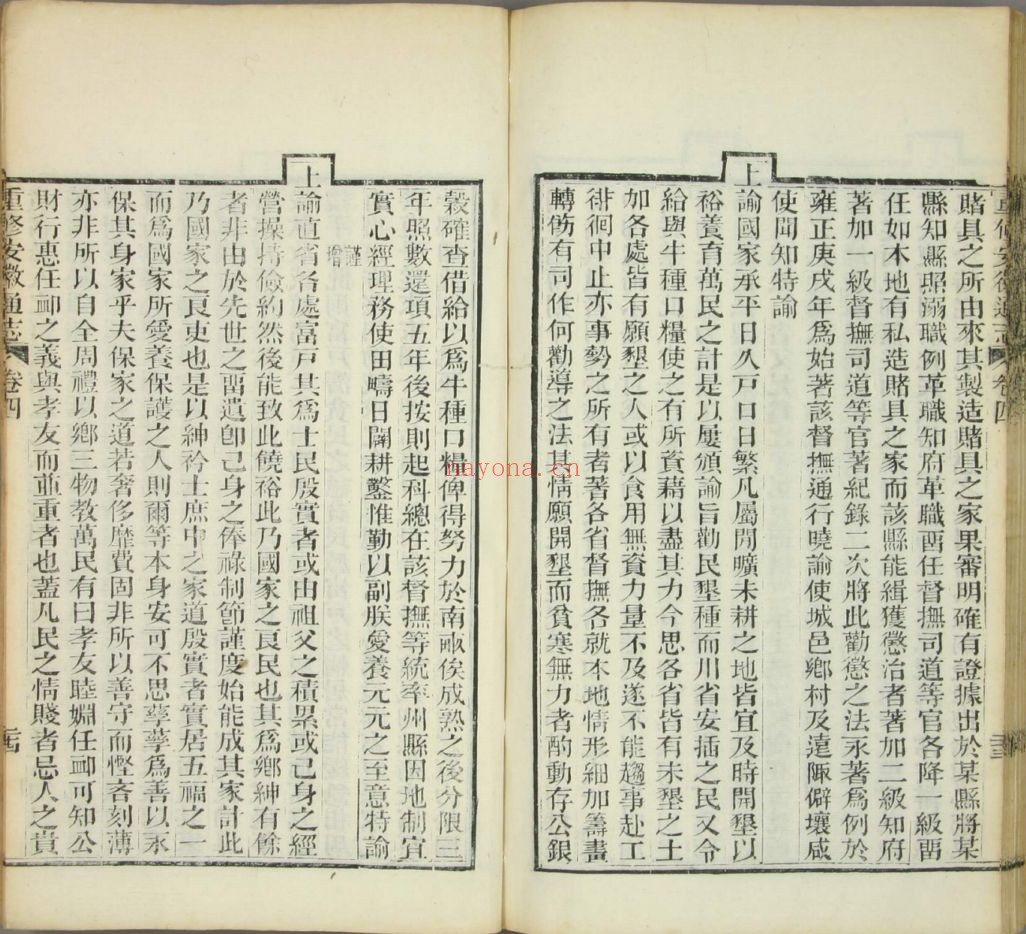 賭具之所由來其製造賭具之家果審明確有證據出於某縣將某
縣知縣照溺職例革職知府革職畱任督撫司道等官各降一級畱
任如本地有私造賭具之家而該縣能緝獲懲治者著加二級知府
著加一級督撫司道等官著紀錄二次將此勸懲之法永著爲例於
雍正庚戌年爲始著該督撫通行曉諭使城邑鄉村及遠陬僻壤咸
使聞知特諭
上諭國家承平日久戸口日繁凡屬閒曠未耕之地皆宜及時開墾以
裕養育萬民之計是以屢頒諭旨勸民墾種而川省安插之民又令
給與牛種口糧使之有所資藉以盡其力今思各省皆有未墾之土
加各處皆有願墾之人或以食用無資力量不及遂不能趨事赴工
徘徊中止亦事勢之所有者著各省督撫各就本地情形細加籌畫
轉飭有司作何勸導之法其情願開墾而貧寒無力者酌動存公銀
榖確查借給以爲牛種口糧俾得努力於南畝俟成熟之後分限三
年照數還項五年後按則起科總在該督撫等統率州縣因地制宜
實心經理務使田疇日闢耕鑿惟勤以副朕愛養元元之至意特諭
謹增
上諭直省各處富戸其爲士民殷實者或由祖父之積累或己身之經
營操持儉約然後能致此饒裕此乃國家之良民也其爲鄉紳有餘
者非由於先世之畱遺卽己身之俸祿制節謹度始能成其家計此
乃國家之良吏也是以紳衿士庶中之家道殷實者實居五福之一
而爲國家所愛養保護之人則爾等本身安可不思孳孳爲善以永
保其身家乎夫保家之道若奢侈靡費固非所以善守而慳吝刻薄
亦非所以自全周禮以鄉三物教萬民有曰孝友睦婣任卹可知公
財行惠任卹之義與孝友而並重者也蓋凡民之情賤者忌人之貴
重修安徽通志 卷四